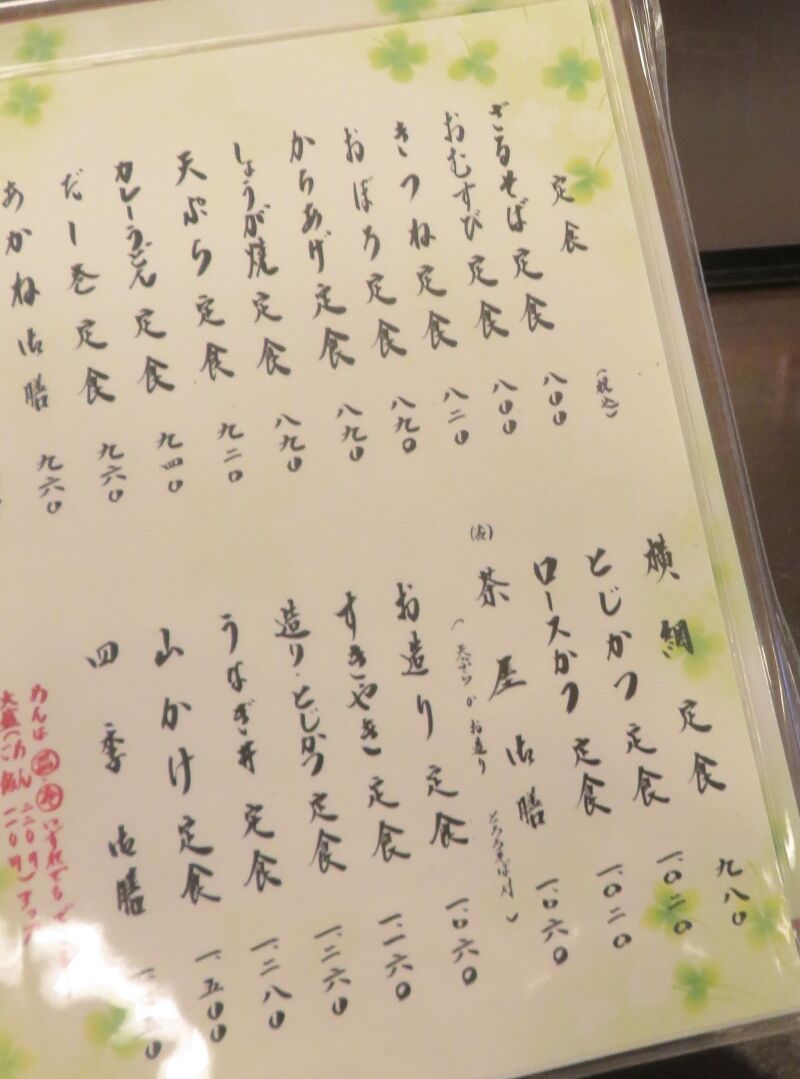 定食 (税込)
ざるそば定食 八〇〇
おむすび定食 八〇〇
きつね定食 八二〇
おぼろ定食 八九〇
からあげ定食 八九〇
しょうが焼定食 八九〇
天ぷら定食 九二〇
カレーうどん定食 九四〇
だし巻定食 九六〇
あかね御膳 九六〇
横綱定食 九八〇
とじかつ定食 一、〇二〇
ロースかつ定食 一、〇二〇
茶屋御膳 一、〇六〇
(天ぷらかお造り とろろそば付)
お造り定食 一、〇六〇
すきやき定食 一、一六〇
造り・とじかつ定食 一、二六〇
うなぎ丼定食 一、二八〇
山かけ定食 一、五〇〇
四季御膳
めんは温・冷いずれでもで
大盛(めん二二〇円)
ご飯一一〇円